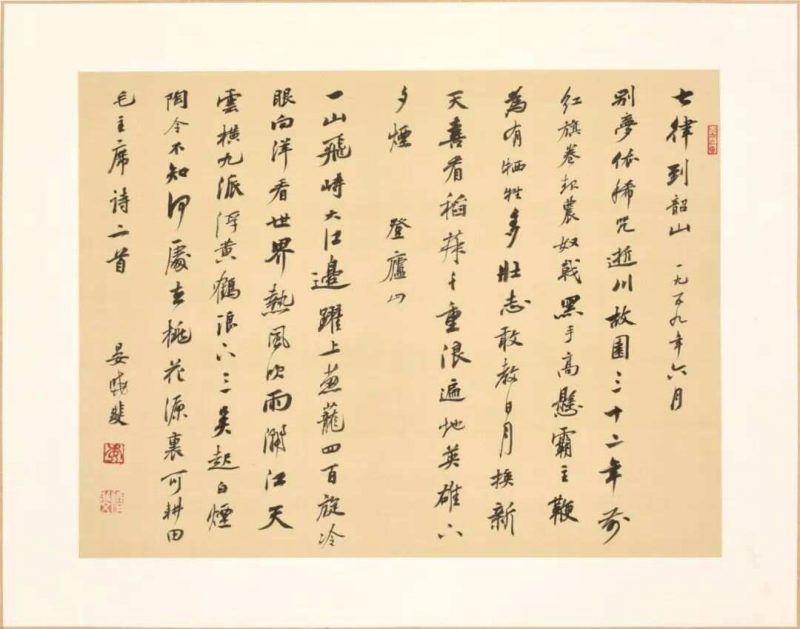 七律到韶山 一九五九年六月
别夢依稀咒逝川故園三十二年前
红旗卷起農奴戟黑手高懸霸主鞭
為有牺牲多壮志敢教日月換新
天喜看稻菽千重浪遍地英雄下
夕煙 登廬山
一山飛峙大江邊躍上葱蘢四百旋冷
眼向洋看世界熱風吹雨灑江天
雲橫九派浮黄鶴浪下三吴起白煙
陶令不知何處去桃花源裏可耕田
毛主席詩二首 晏